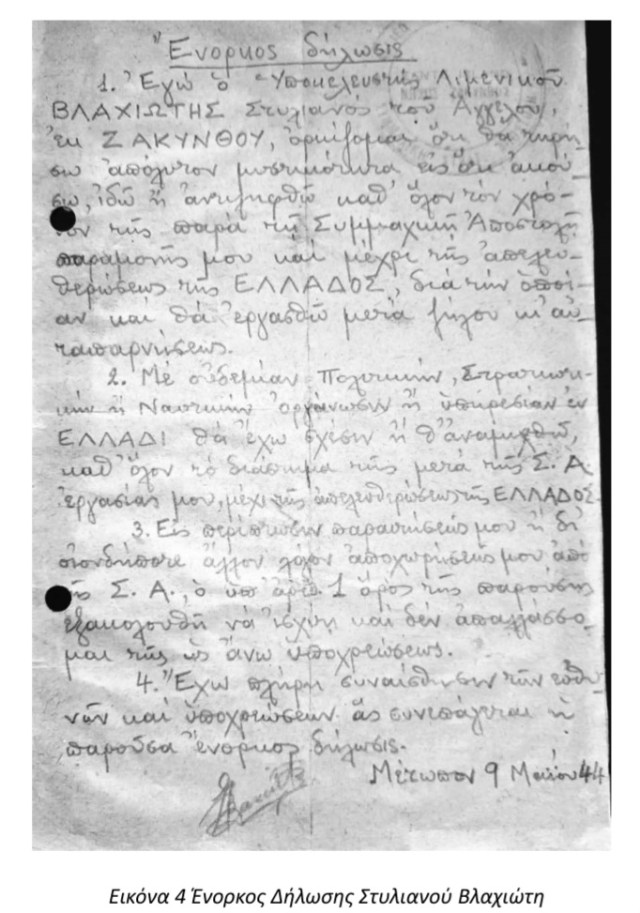 Ἔνορκος δήλωσις
1. Ἐγώ ὁ Ὑποκελευστής Λιμενικοῦ
ΒΛΑΧΙΩΤΗΣ Στυλιανός τοῦ Ἀγγέλου,
ἐκ ΖΑΚΥΝΘΟΥ, ὁρκίζομαι ὅτι θα τηρή-
σω ἀπόλυτον μυστικότητα εἰς ὅτι ἀκού-
σω, ἰδῶ ἤ ἀντιληφθῶ καθ' ὅλον τόν χρό-
νον τῆς παρά τῇ Συμμαχικῇ Ἀποστολῇ
παραμονῆς μου καί μέχρι τῆς ἀπελευ-
θερώσεως τῆς ΕΛΛΑΔΟΣ, διά τήν ὁποί-
αν καί θά ἐργασθῶ μετά ζήλου κι' αὐ-
ταπαρνήσεως.
2. Μέ οὐδεμίαν Πολιτικήν, Στρατιωτι-
κήν ἤ Ναυτικήν ὀργάνωσιν ἤ ὑπηρεσίαν ἐν
ΕΛΛΑΔΙ θά ἔχω σχέσιν ἤ θ' ἀναμιχθῶ,
καθ' ὅλον τό διάστημα τῆς μετά τῆς Σ. Α.
ἐργασίας μου, μέχρι τῆς ἀπελευθερώσεως τῆς ΕΛΛΑΔΟΣ.
3. Εἰς περίπτωσιν παραιτήσεώς μου ἤ δι'
οἱονδήποτε ἄλλον λόγον ἀποχωρήσεώς μου ἀπό
τῆς Σ. Α., ὁ ὑπ' ἀριθ. 1 ὅρος τῆς παρούσης
ἐξακολουθῇ νά ἰσχύῃ καί δέν ἀπαλλάσσο-
μαι τῆς ὡς ἄνω ὑποχρεώσεως.
4. Ἔχω πλήρη συναίσθησιν τῶν εὐθυ-
νῶν καί ὑποχρεώσεων ἅς συνεπάγεται ἡ
παροῦσα ἔνορκος δήλωσις.
Μέτωπον 9 Μαΐου 44
Εικόνα 4 Ένορκος Δήλωσης Στυλιανού Βλαχιώτη